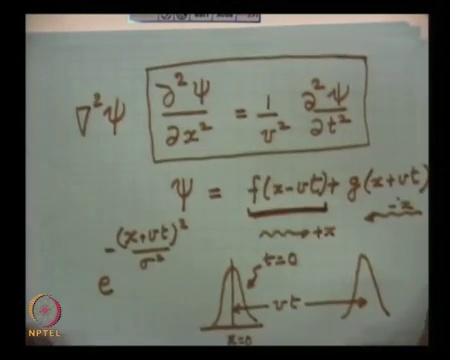 ∇²ψ ∂²ψ/∂x² = 1/v² ∂²ψ/∂t²
ψ = f(x-vt) + g(x+vt)
+x -x
e^-(x+vt)²/σ²
t=0
vt
x=0
NPTEL